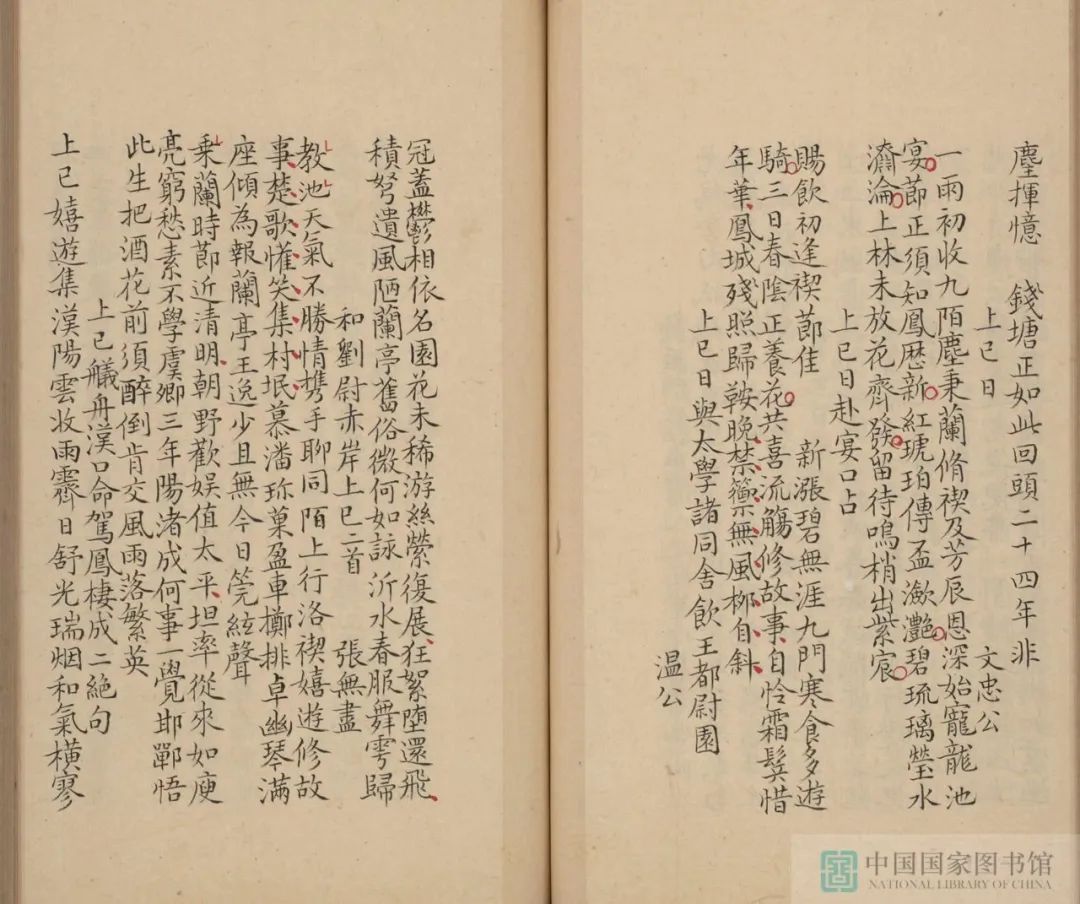 塵揮憶　錢塘正如此回頭二十四年非
上巳日　文忠公
一雨初收九陌塵秉蘭脩禊及芳辰恩深始寵龍池
宴莭正須知鳳歴新紅琥珀傳盃瀲灧碧琉璃瑩水
瀹淪上林未放花齊發留待鳴梢出紫宸
上巳日赴宴口占
賜飲初逢禊莭佳　新漲碧無涯九門寒食多遊
騎三日春陰正養花共喜流觴修故事自怜霜鬂惜
年華鳳城殘照歸鞍晚禁籞無風柳自斜
上巳日與太學諸同舍飲王都尉園
温公
冠蓋鬱相依名園花未稀游絲縈復展狂絮墮還飛
積弩遺風陋蘭亭舊俗微何如詠沂水春服舞雩歸
和劉尉赤岸上巳二首　張無盡
教池天氣不勝情携手聊同陌上行洛禊嬉遊修故
事楚歌懽笑集村垊慕潘珎菓盈車擲排卓幽琴滿
座傾為報蘭亭王逸少且無今日筦絃聲
乗蘭時莭近清明朝野歡娱值太平坦率從來如庾
亮窮愁素不學虞卿三年陽渚成何事一覺邯鄲悟
此生把酒花前須醉倒肯交風雨落繁英
上巳艤舟漢口命駕鳳棲成二絶句
上巳嬉遊集漢陽雲收雨霽日舒光瑞烟和氣横寥
中国国家图书馆
NATIONAL LIBRARY OF CHINA